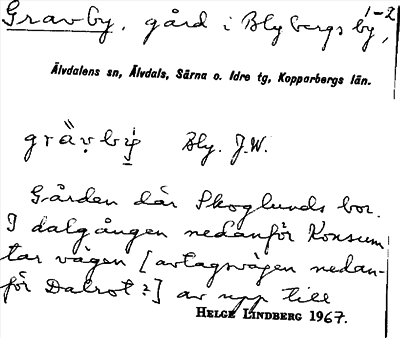 Gravby, gård i Blybergs by, 1-2
Älvdalens sn, Älvdals, Särna o. Idre tg, Kopparbergs län.
grä̀v̥by̠ Bly. J.W.
Gården där Skoglunds bor.
I dalgången nedanför Konsum
tar vägen [avtagsvägen nedan-
för Dalrot?] av upp till
HELGE LINDBERG 1967.